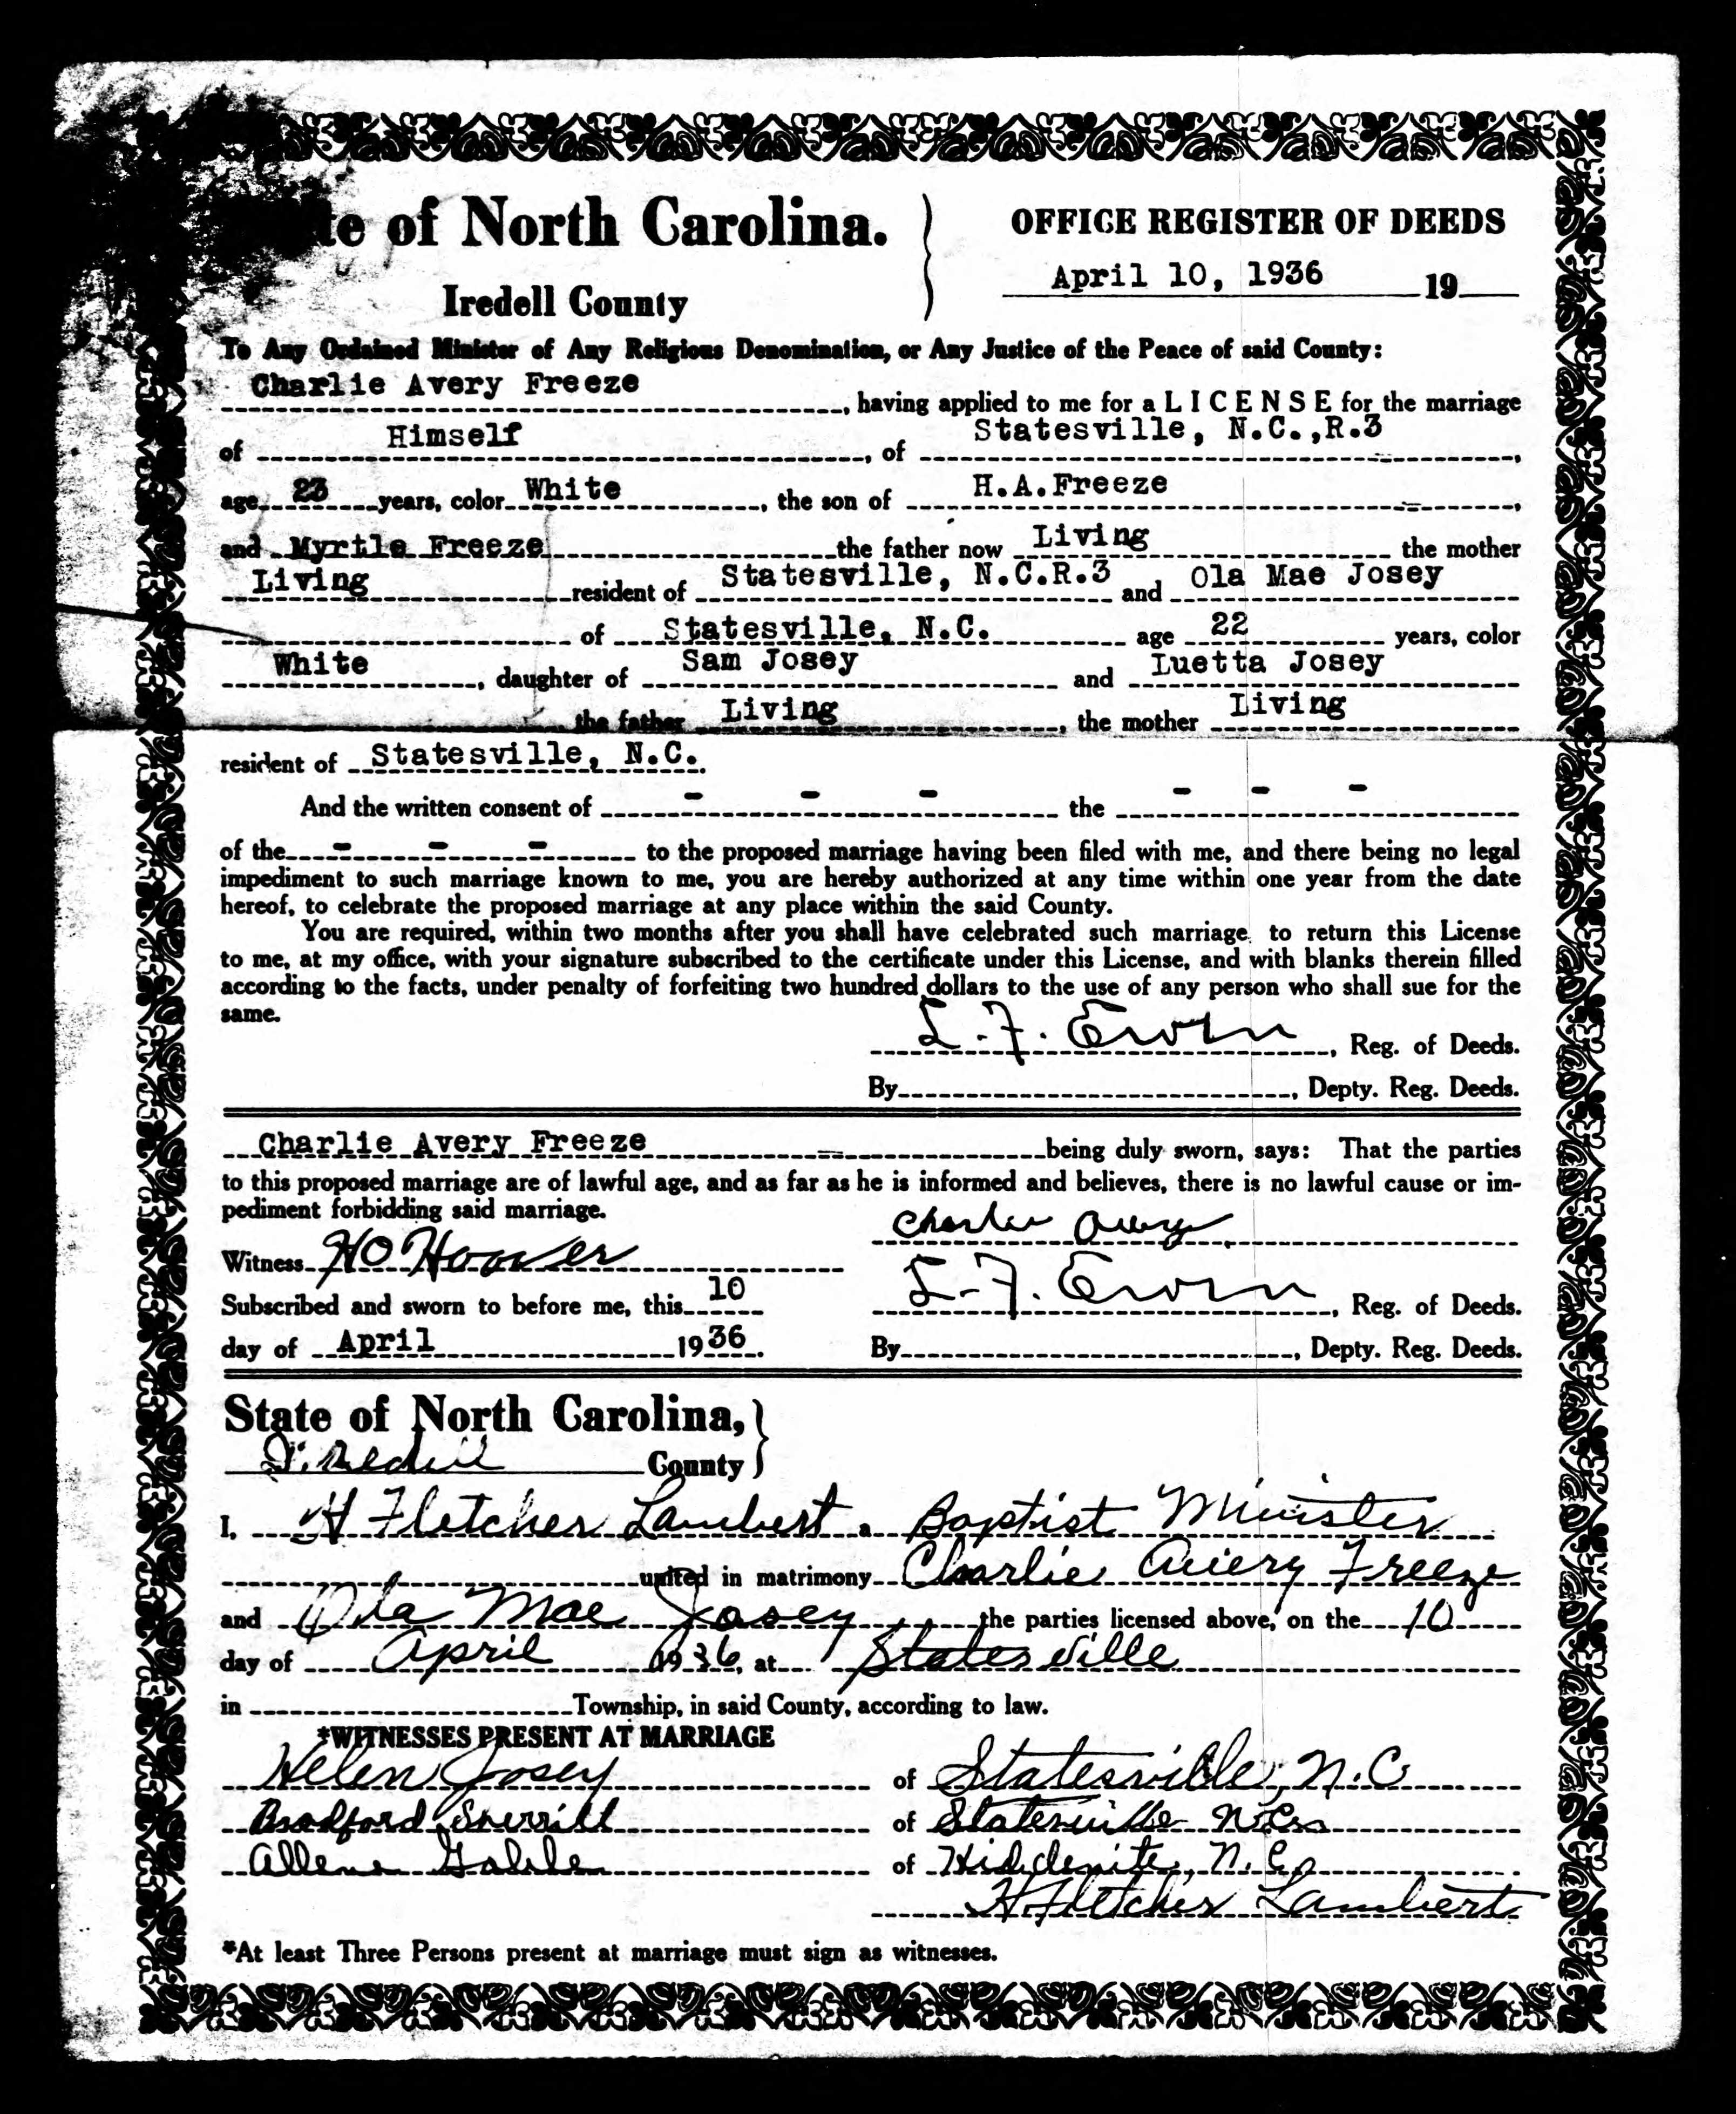 te of North Carolina.
OFFICE REGISTER OF DEEDS
April 10, 1936 19
Iredell County
To Any Ordained Minister of Any Religious Denomination, or Any Justice of the Peace of said County:
Charlie Avery Freeze, having applied to me for a LICENSE for the marriage
of Himself, of Statesville, N.C.,R.3,
age 23 years, color White, the son of H.A.Freeze,
and Myrtle Freeze the father now Living the mother
Living resident of Statesville, N.C.R.3 and Ola Mae Josey
of Statesville, N.C. age 22 years, color
White, daughter of Sam Josey and Luetta Josey
the father Living, the mother Living
resident of Statesville, N.C.
And the written consent of - - - the - - -
of the - - - to the proposed marriage having been filed with me, and there being no legal
impediment to such marriage known to me, you are hereby authorized at any time within one year from the date
hereof, to celebrate the proposed marriage at any place within the said County.
You are required, within two months after you shall have celebrated such marriage to return this License
to me, at my office, with your signature subscribed to the certificate under this License, and with blanks therein filled
according to the facts, under penalty of forfeiting two hundred dollars to the use of any person who shall sue for the
same.
L. F. Ervin, Reg. of Deeds.
By, Depty. Reg. Deeds.
Charlie Avery Freeze being duly sworn, says: That the parties
to this proposed marriage are of lawful age, and as far as he is informed and believes, there is no lawful cause or im-
pediment forbidding said marriage.
Charlie Avery
Witness HO Hoover
Subscribed and sworn to before me, this 10
L. F. Ervin, Reg. of Deeds.
day of April 1936.
By, Depty. Reg. Deeds.
State of North Carolina,
Iredell County
I, H Fletcher Lambert a Baptist Minister
united in matrimony Charlie Avery Freeze
and Ola Mae Josey the parties licensed above, on the 10
day of April 1936, at Statesville
in Township, in said County, according to law.
*WITNESSES PRESENT AT MARRIAGE
Helen Josey of Statesville, N.C.
Bradford Sherrill of Statesville N.C.
Allene of Hiddenite, N.C.
H Fletcher Lambert
*At least Three Persons present at marriage must sign as witnesses.